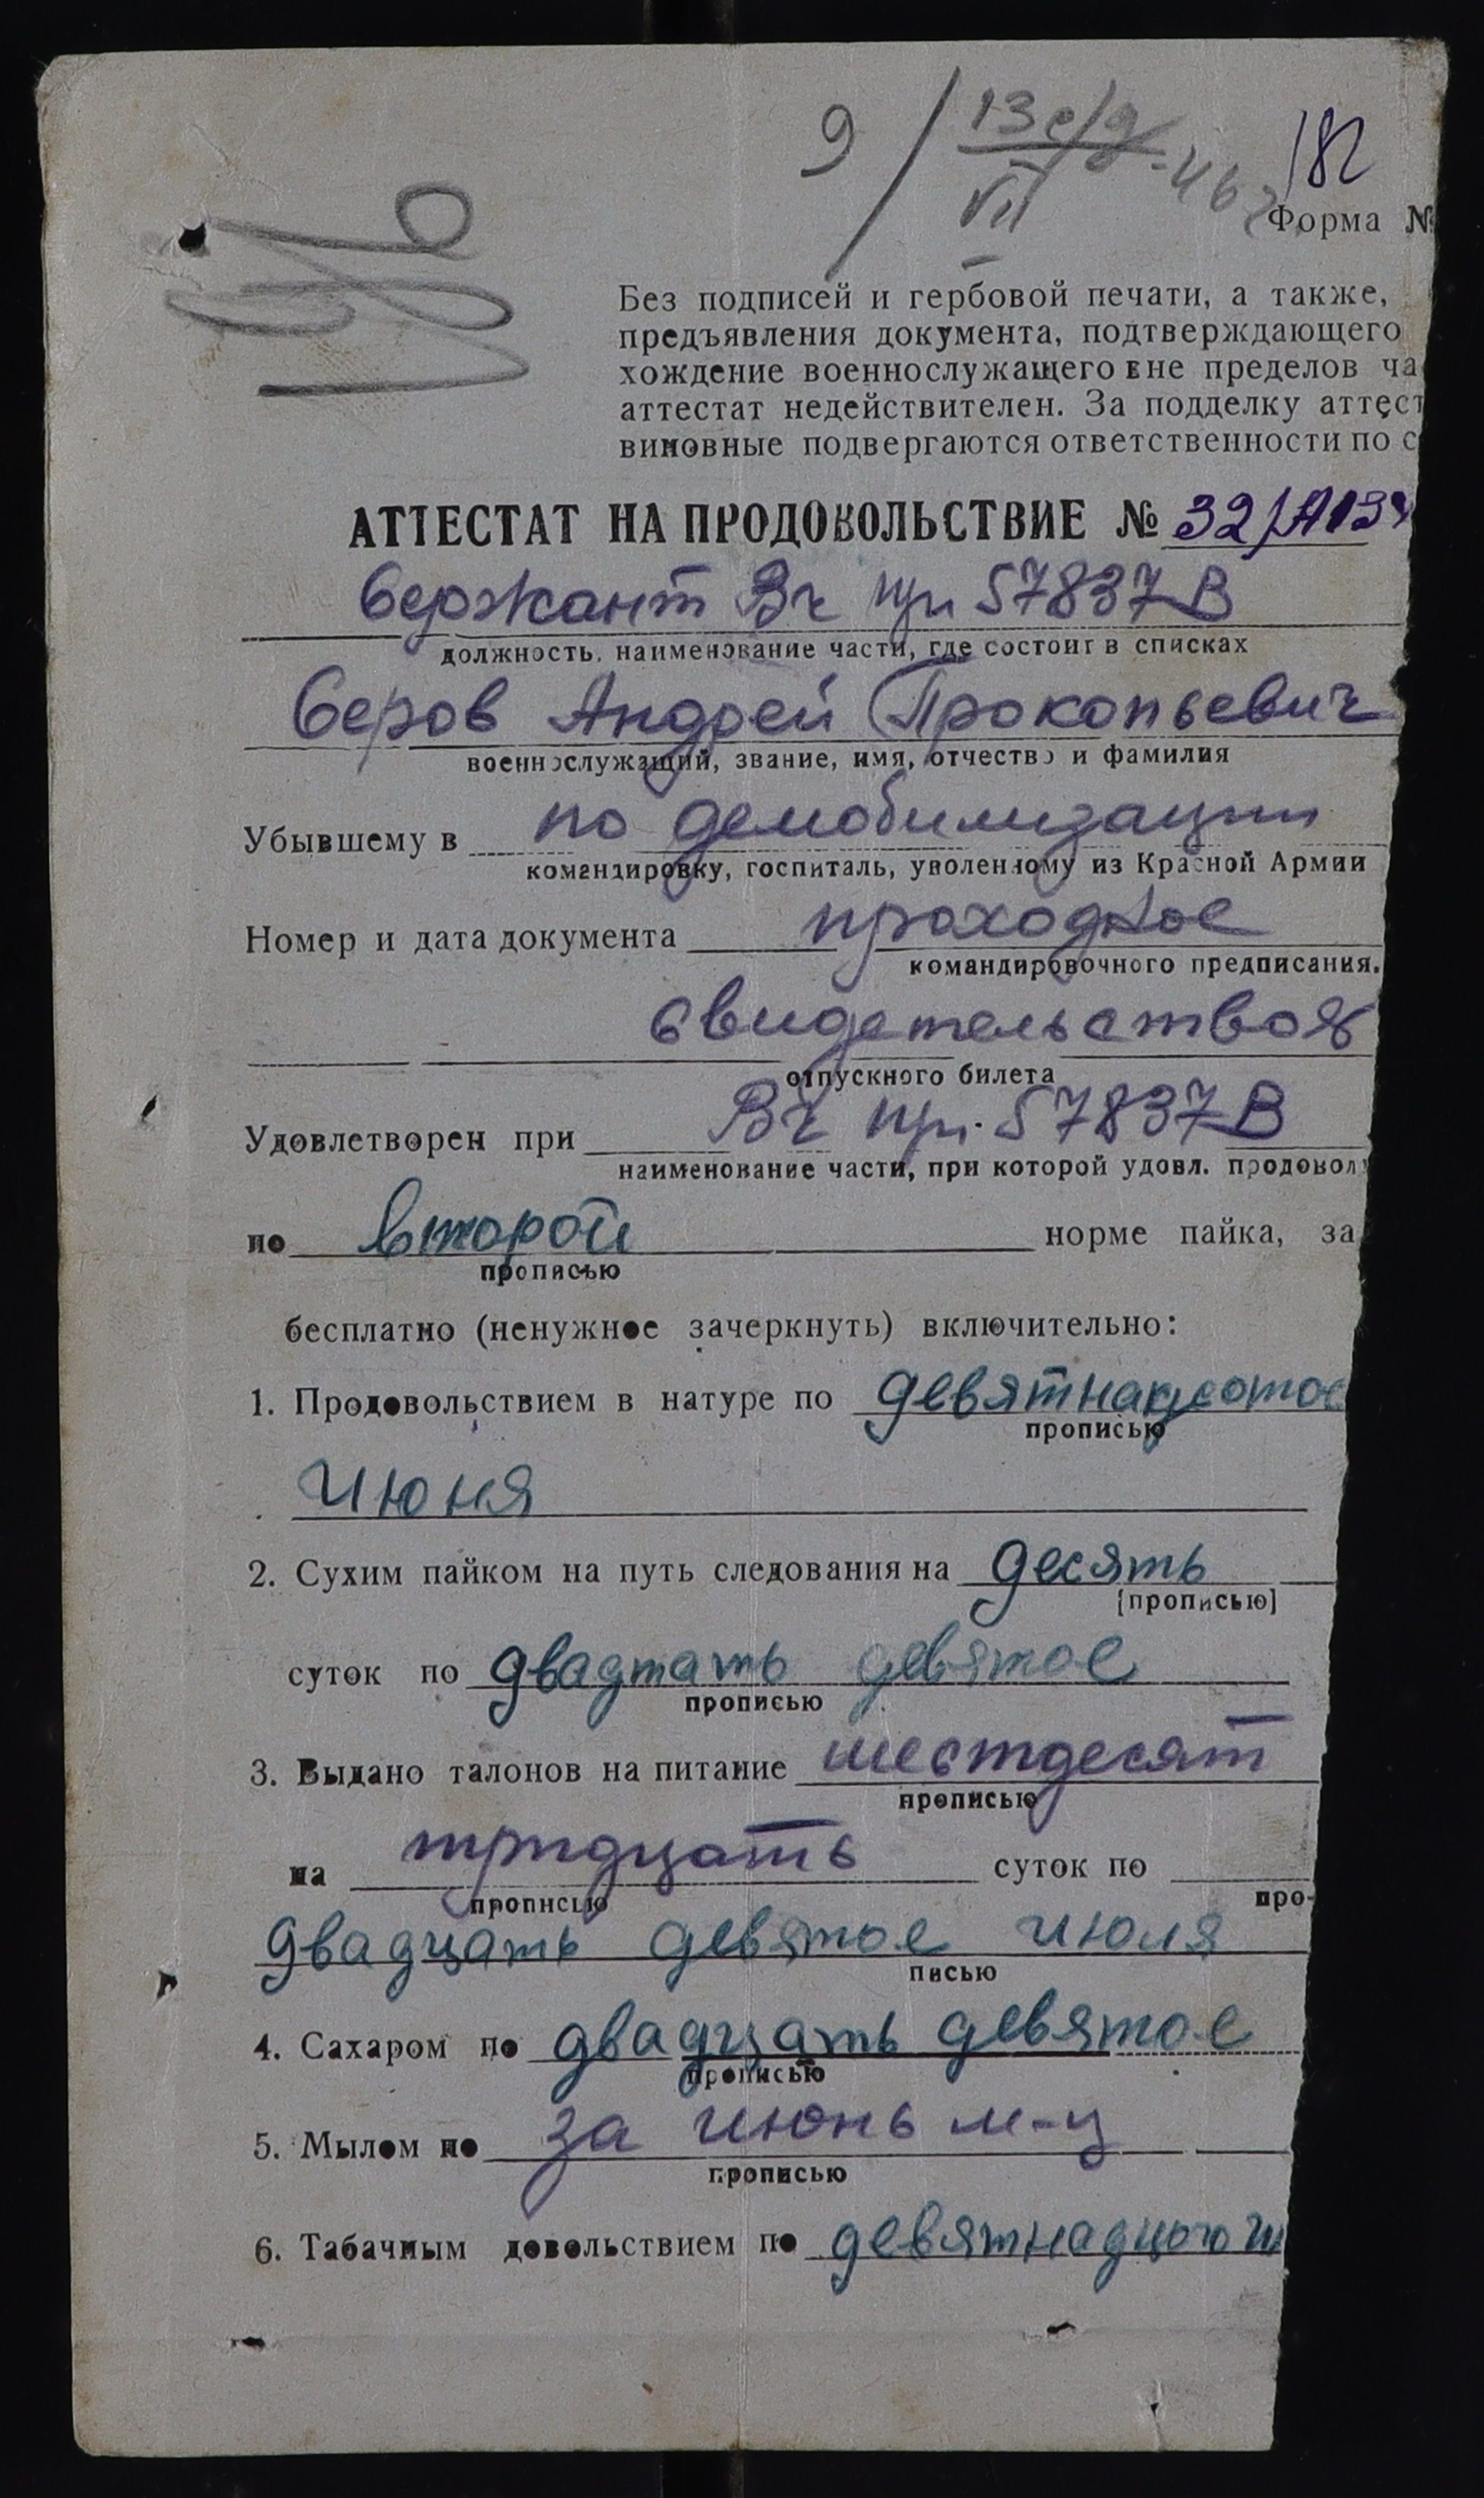 9 / 13 е/д
182
VII - 46 г.
Форма №
Без подписей и гербовой печати, а также,
предъявления документа, подтверждающего
хождение военнослужащего вне пределов ча
аттестат недействителен. За подделку аттест
виновные подвергаются ответственности по с
АТТЕСТАТ НА ПРОДОВОЛЬСТВИЕ № 32/А13
Сержант Вч пп 57837-В
должность, наименование части, где состоит в списках
Серов Андрей Прокопьевич
военнослужащий, звание, имя, отчество и фамилия
Убывшему в по демобилизации
командировку, госпиталь, уволенному из Красной Армии
Номер и дата документа проходное
командировочного предписания.
свидетельство
отпускного билета
Удовлетворен при Вч пп. 57837-В
наименование части, при которой удовл. продовол
по второй норме пайка, за
прописью
бесплатно (ненужное зачеркнуть) включительно:
1. Продовольствием в натуре по девятнацотое
прописью
Июня
2. Сухим пайком на путь следования на десять
[прописью]
суток по двадтать девятое
прописью
3. Выдано талонов на питание шестдесят
прописью
на тридцать суток по
прописью про-
двадцать девятое июля
писью
4. Сахаром по двадцать девятое
прописью
5. Мылом по за июнь м-ц
прописью
6. Табачным довольствием по девятнадцого